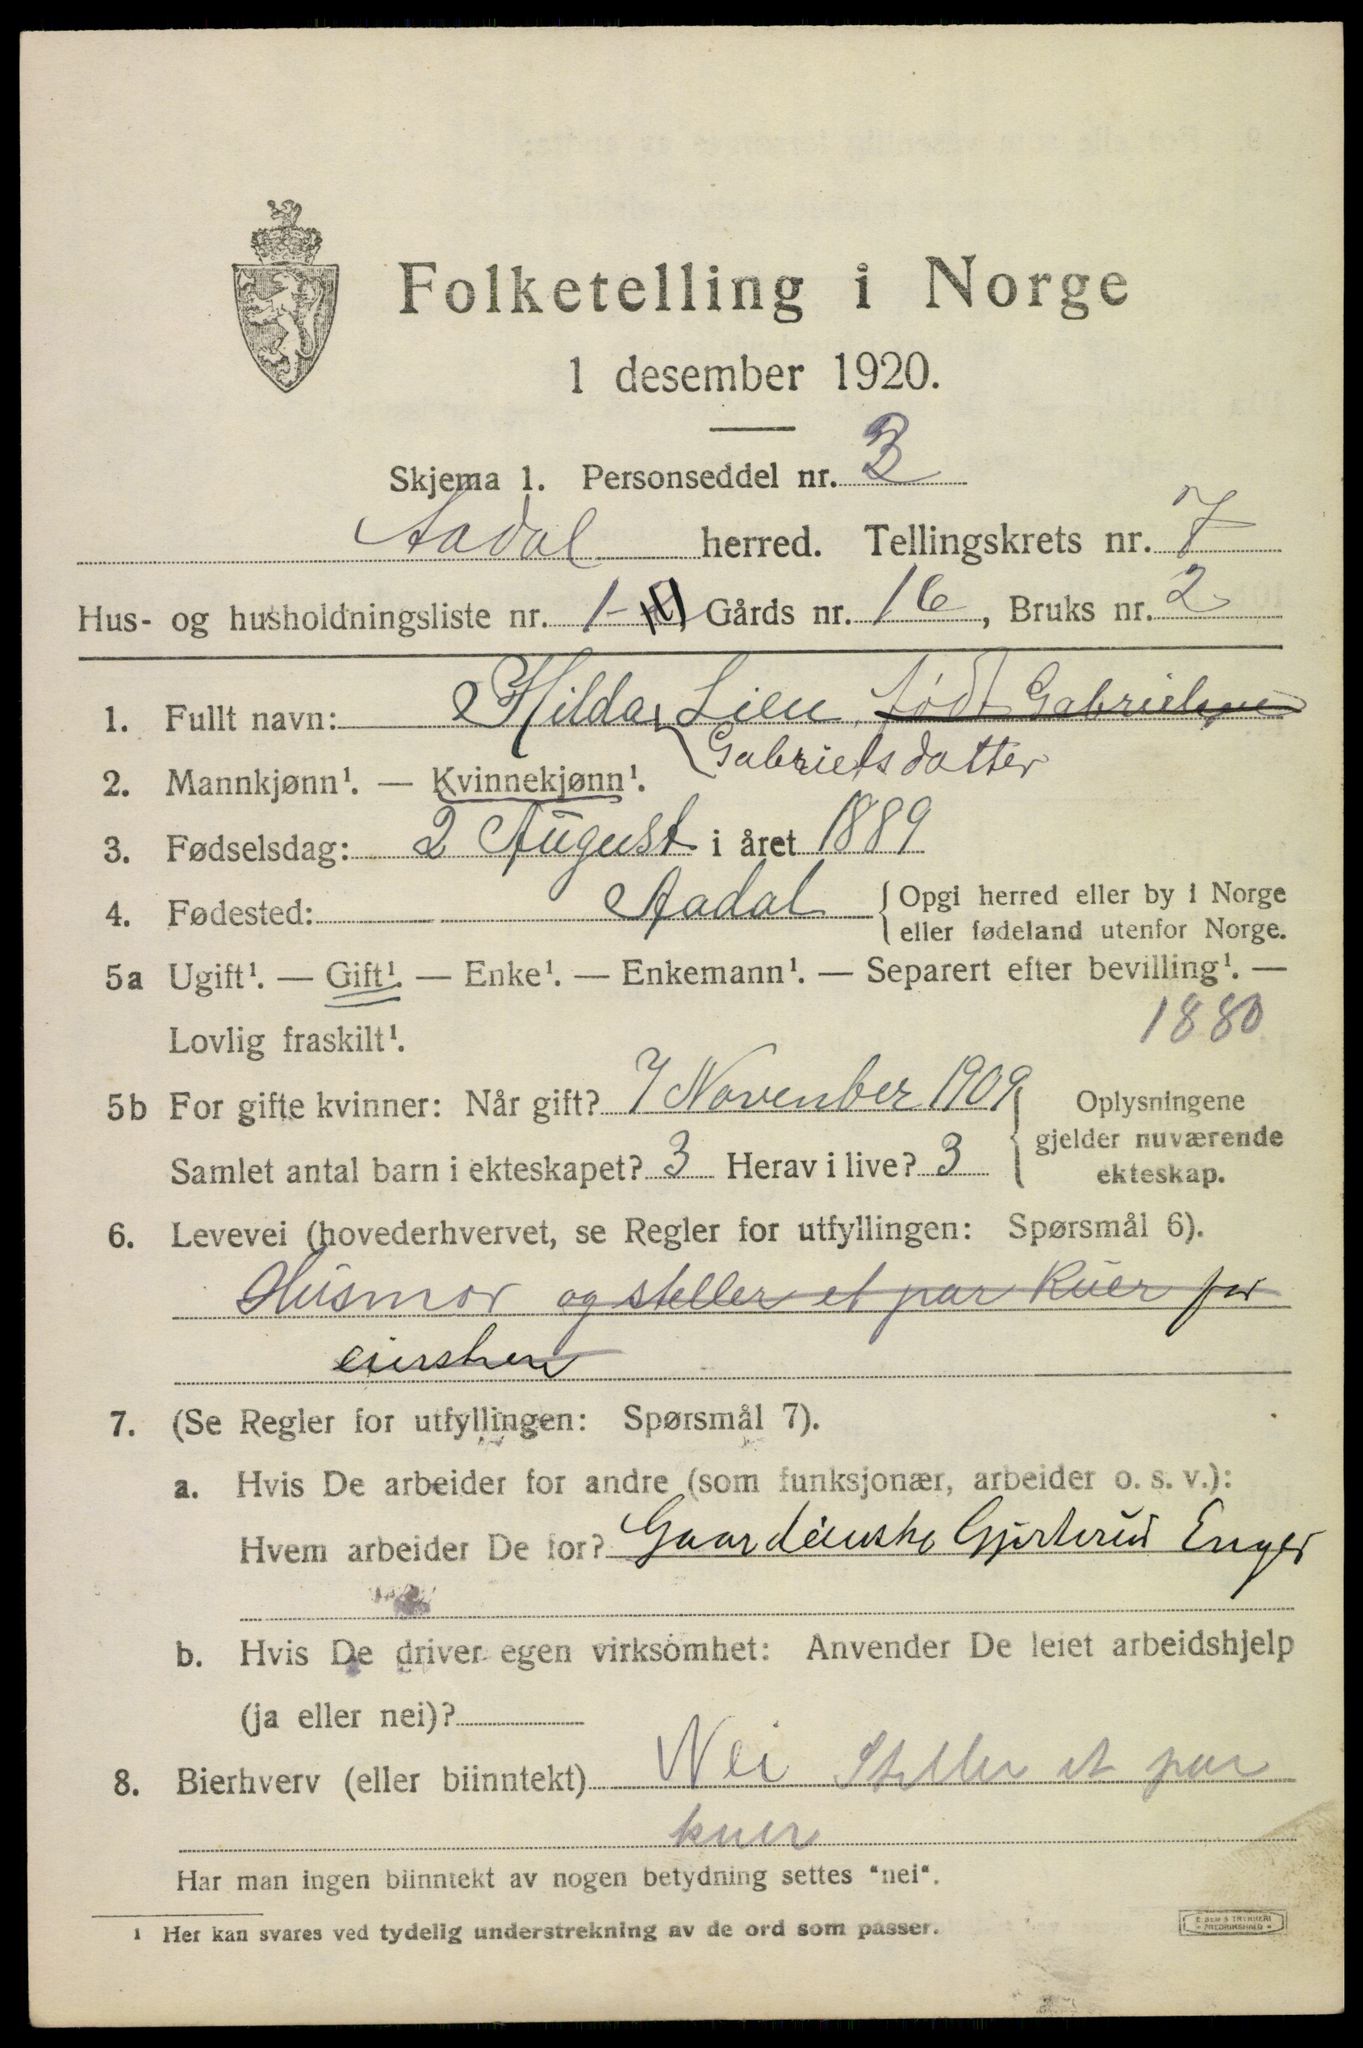 Folketelling i Norge
1 desember 1920.
Skjema 1. Personseddel nr. 3
Aadal herred. Tellingskrets nr. 7
Hus- og husholdningsliste nr. 1 Gårds nr. 16, Bruks nr. 2
1. Fullt navn: Hilda Lien født Gabrielsen
Gabrielsdatter
2. Mannkjønn¹. — Kvinnekjønn¹.
3. Fødselsdag: 2 August i året 1889
4. Fødested: Aadal { Opgi herred eller by i Norge
eller fødeland utenfor Norge.
5a Ugift¹. — Gift¹. — Enke¹. — Enkemann¹. — Separert efter bevilling¹. —
Lovlig fraskilt¹.
1880
5b For gifte kvinner: Når gift? 7 November 1909 { Oplysningene
gjelder nuværende
ekteskap.
Samlet antal barn i ekteskapet? 3 Herav i live? 3
6. Levevei (hovederhvervet, se Regler for utfyllingen: Spørsmål 6).
Husmor og steller et par kuer for
7. (Se Regler for utfyllingen: Spørsmål 7).
a. Hvis De arbeider for andre (som funksjonær, arbeider o. s. v.):
Hvem arbeider De for? Enger
b. Hvis De driver egen virksomhet: Anvender De leiet arbeidshjelp
(ja eller nei)?
8. Bierhverv (eller biinntekt) Nei Steller et par
kuer
Har man ingen biinntekt av nogen betydning settes "nei".
¹ Her kan svares ved tydelig understrekning av de ord som passer.